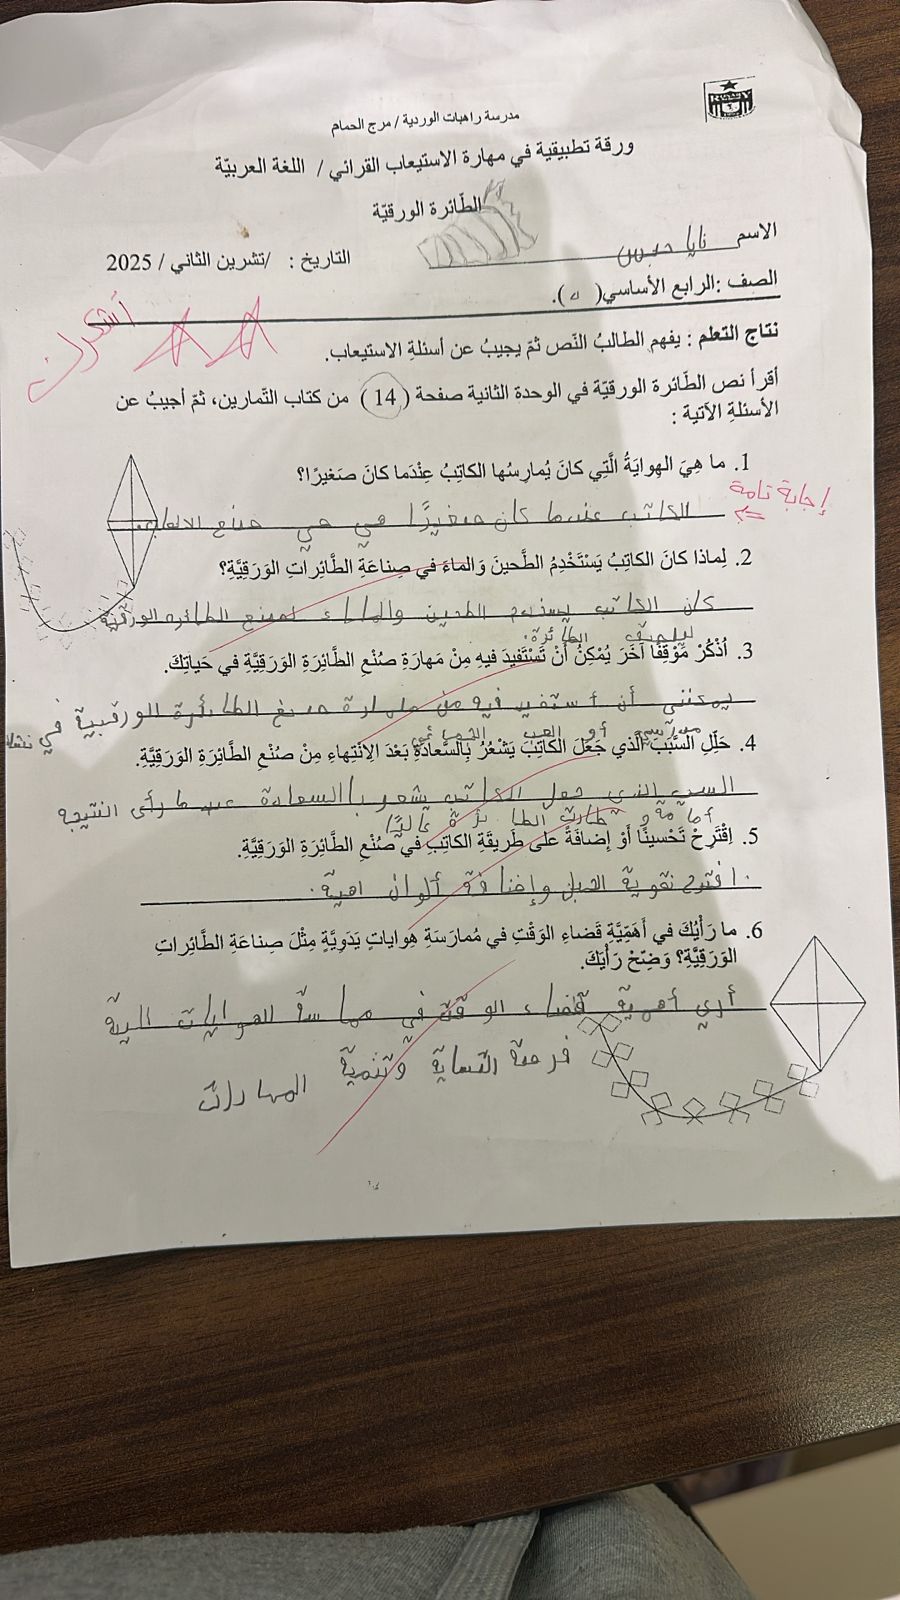 مدرسة راهبات الوردية / مرج الحمام
ورقة تطبيقية في مهارة الاستيعاب القرائي / اللغة العربيّة
الطّائرة الورقيّة
الاسم
التاريخ : /تشرين الثاني / 2025
الصف :الرابع الأساسي( ).
أشكرك
نتاج التعلم : يفهم الطالبُ النّص ثمّ يجيبُ عن أسئلةِ الاستيعاب.
أقرأ نص الطّائرة الورقيّة في الوحدة الثانية صفحة ( 14 ) من كتاب التّمارين، ثمّ أجيبُ عن
الأسئلةِ الآتية :
1. ما هِيَ الهِوايَةُ الَّتِي كانَ يُمارِسُها الكاتِبُ عِنْدَما كانَ صَغيرًا؟
إجابة تامة
الكاتب عندما كان صغيرًا هي حي صنع الالعاب.
2. لِماذا كانَ الكاتِبُ يَسْتَخْدِمُ الطَّحينَ وَالماءَ في صِناعَةِ الطَّائِراتِ الوَرَقِيَّةِ؟
كان الكاتب يستخدم الطحين والماء لصنع الطائره الورقية
الطائرة.
3. اُذْكُرْ مَوْقِفًا آخَرَ يُمْكِنُ أَنْ تَسْتَفيدَ فيه مِنْ مَهارَةِ صُنْعِ الطَّائِرَةِ الوَرَقِيَّةِ في حَياتِكَ.
يمكنني أن أستفيد فيه من مهارة صنع الطائرة الورقية في
أو العب
4. حَلِّلِ السَّبَبَ الَّذي جَعَلَ الكاتِبَ يَشْعُرُ بِالسَّعادَةِ بَعْدَ الِانْتِهاءِ مِنْ صُنْعِ الطَّائِرَةِ الوَرَقِيَّةِ.
السبب الذي جعل الكاتب يشعر بالسعادة عندما رأى النتيجه
أمامة و طارت الطائرة عاليًا
5. اِقْتَرِحْ تَحْسينًا أَوْ إِضافَةً على طَريقَةِ الكاتِبِ في صُنْعِ الطَّائِرَةِ الوَرَقِيَّةِ.
اقترح تقوية الحبل وإضافة ألوان
6. ما رَأْيُكَ في أَهَمِّيَّةِ قَضاءِ الوَقْتِ في مُمارَسَةِ هِواياتٍ يَدَوِيَّةٍ مِثْلَ صِناعَةِ الطَّائِراتِ
الوَرَقِيَّةِ؟ وَضِّحْ رَأْيَكَ.
أرى أهمية قضاء الوقت في الهوايات
فرصة التسلية وتنمية المهارات